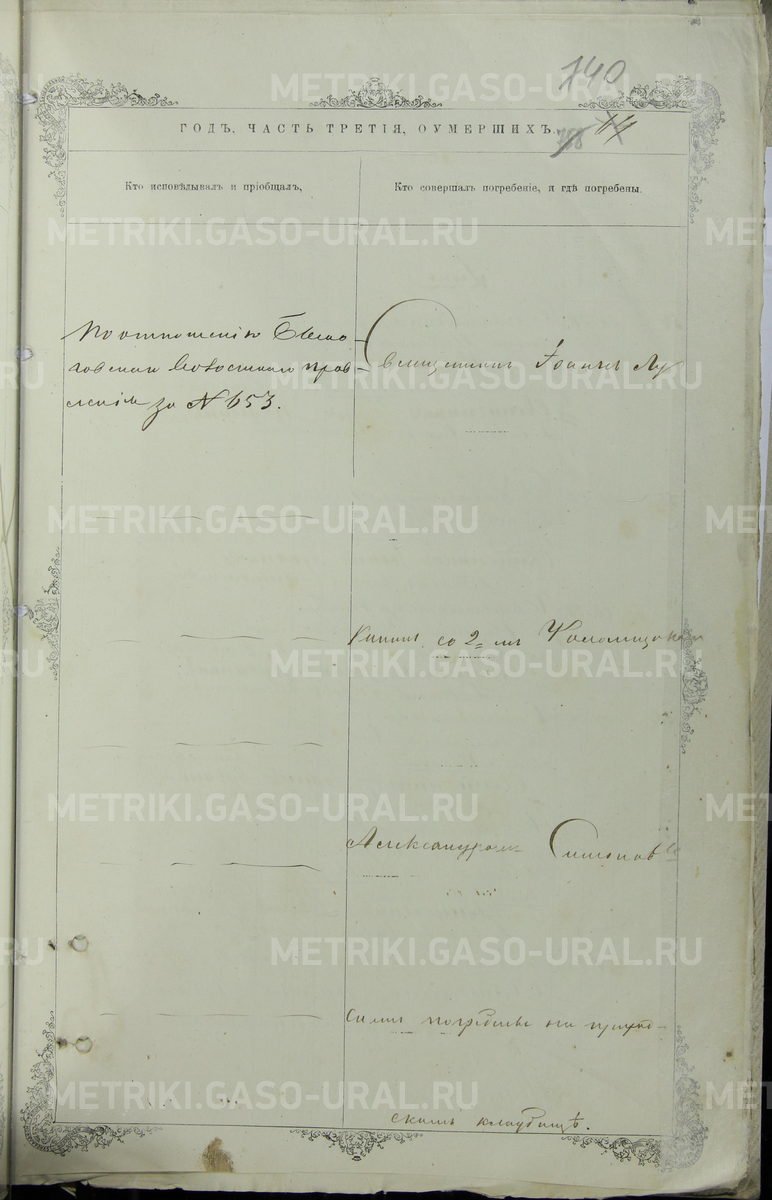 140
ГОДЪ, ЧАСТЬ ТРЕТІЯ, ОУМЕРШИХЪ.
Кто исповѣдывалъ и пріобщалъ,
Кто совершалъ погребеніе, и гдѣ погребены.
По отношенію
Волостнаго прав-
ленія за № 653.
Священникъ Іоаннъ Лу
кинъ со 2=мъ
Александромъ Симоновъ
симъ погребены на приход-
скомъ кладбищѣ.
METRIKI.GASO-URAL.RU